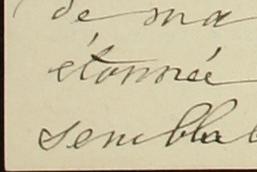 de ma
étonnée
semblab